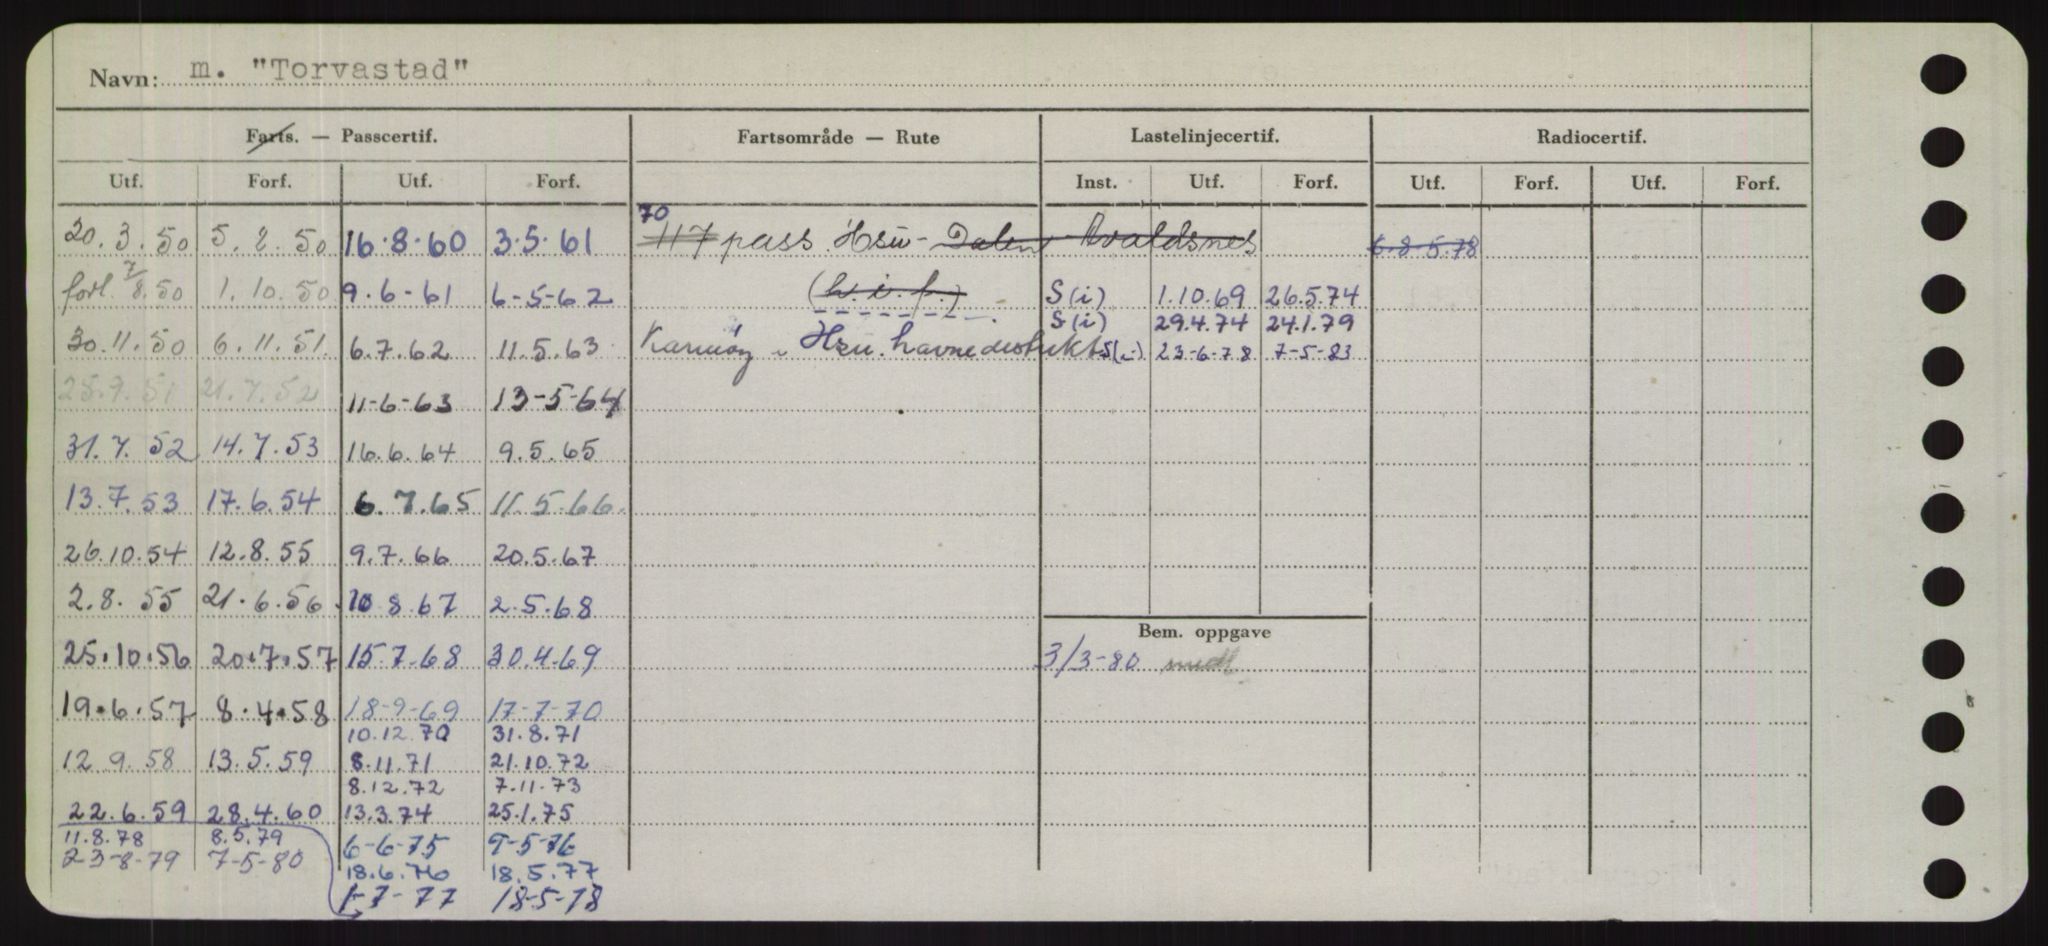 Navn: m. "Torvastad"
Farts. — Passcertif. Fartsområde — Rute Lastelinjecertif. Radiocertif.
Utf. Forf. Utf. Forf. Inst. Utf. Forf. Utf. Forf. Utf. Forf.
70
20.3.50 5.2.50 16.8.60 3.5.61 117 pass. Hsw - Dalen - Avaldsnes 6-8-5.78
forl. 7/8.50 1.10.50 9.6-61 6-5-62 (h.i.f.) S(i) 1.10.69 26.5.74
S(i) 29.4.74 24.1.79
30.11.50 6.11.51. 6.7.62 11.5.63 Karmöy - Hsu. havnedistrikt S(i) 23-6-78 7-5-83
25.7.51 21.7.52 11-6-63 13-5-64
31.7.52 14.7.53 16.6.64 9.5.65
13.7.53 17.6.54 6.7.65 11.5.66.
26.10.54 12.8.55 9.7.66 20.5.67
2.8.55 21.6.56 10.8.67 2.5.68
Bem. oppgave
25.10.56 20.7.57 15.7.68 30.4.69 3/3-80 mudt
19.6.57 8.4.58 18-9-69 17-7-70
10.12.70 31.8.71
12.9.58 13.5.59 8.11.71 21.10.72
8.12.72 7.11.73
22.6.59 28.4.60 13.3.74 25.1.75
11.8.78 8.5.79 6-6-75 9-5-76
23-8-79 7-5-80 18.6.76 18.5.77
1-7-77 18-5-78